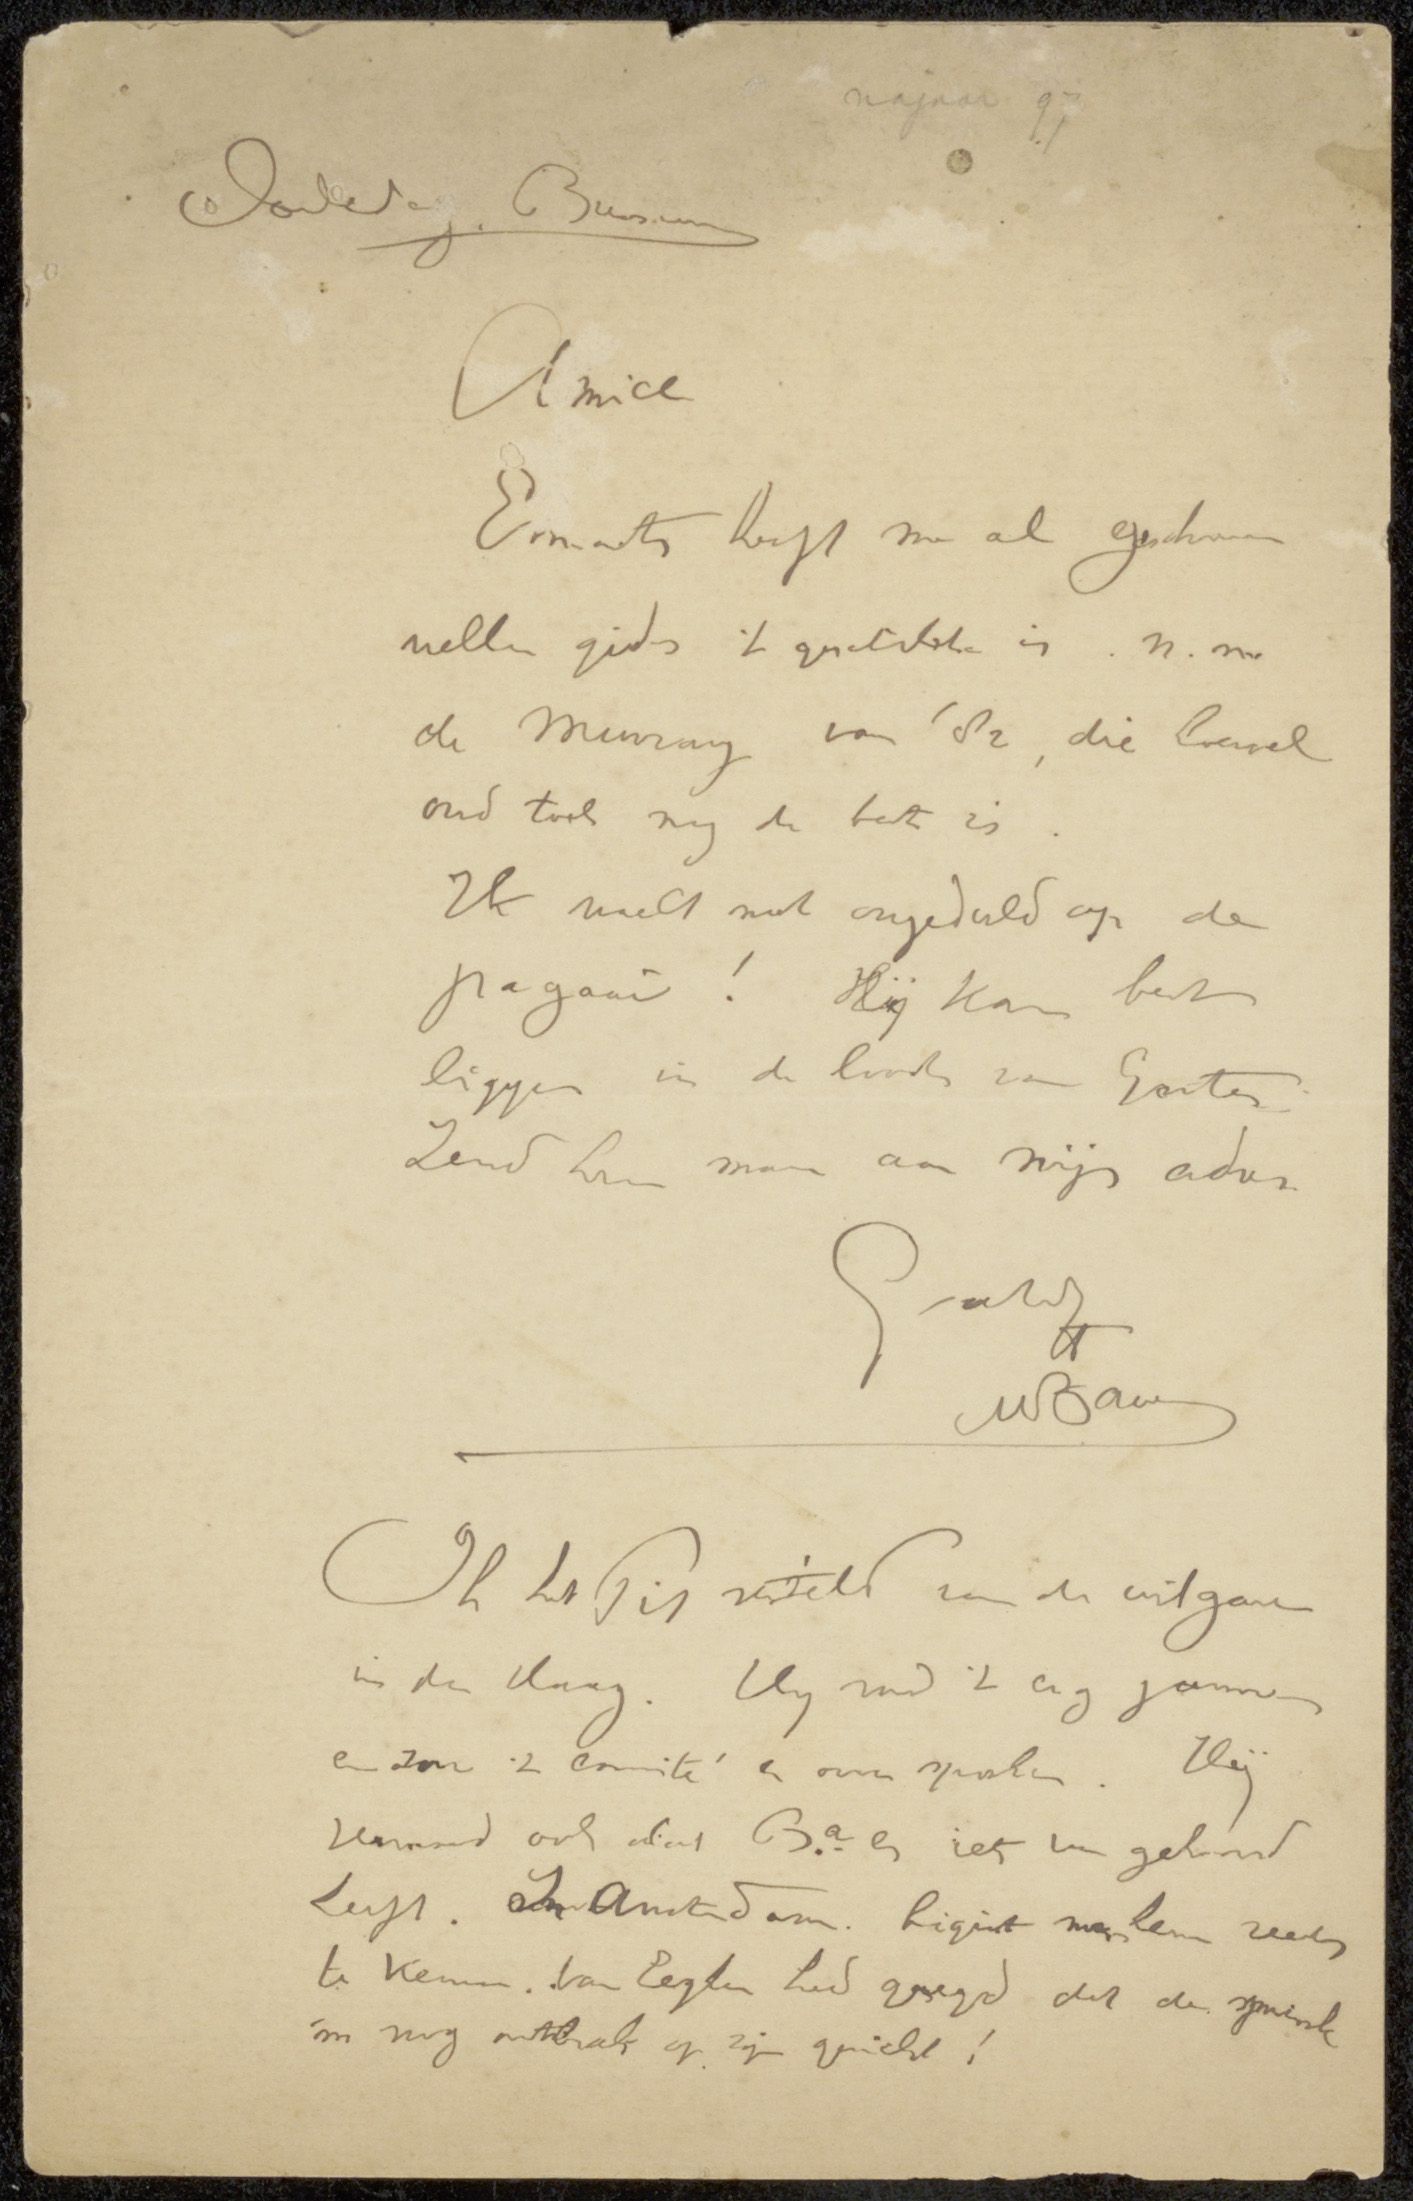 najaar 97
Donderdag. Bussum
Amice
Emants heeft me al geschreven
welke gids 't geschikste is . n.m.
de Murray van '82, die hoewel
oud toch nog de beste is .
Ik wacht met ongeduld op de
pagaai ! Hij kan best
liggen in de loods van Gorter.
Zend hem maar aan mijn adres.
Groetend
tt
MBauer
Ik heb Pit verteld van de uitgave
in den Haag. Hij vond 't erg jammer
en zou 't comité er over spreken . Hij
ook dat B.a er iets van gehoord
heeft . In Amsterdam. begint men hem reeds
te kennen. Van Eeghen had gezegd dat de
'm nog ontbrak op zijn gezicht !